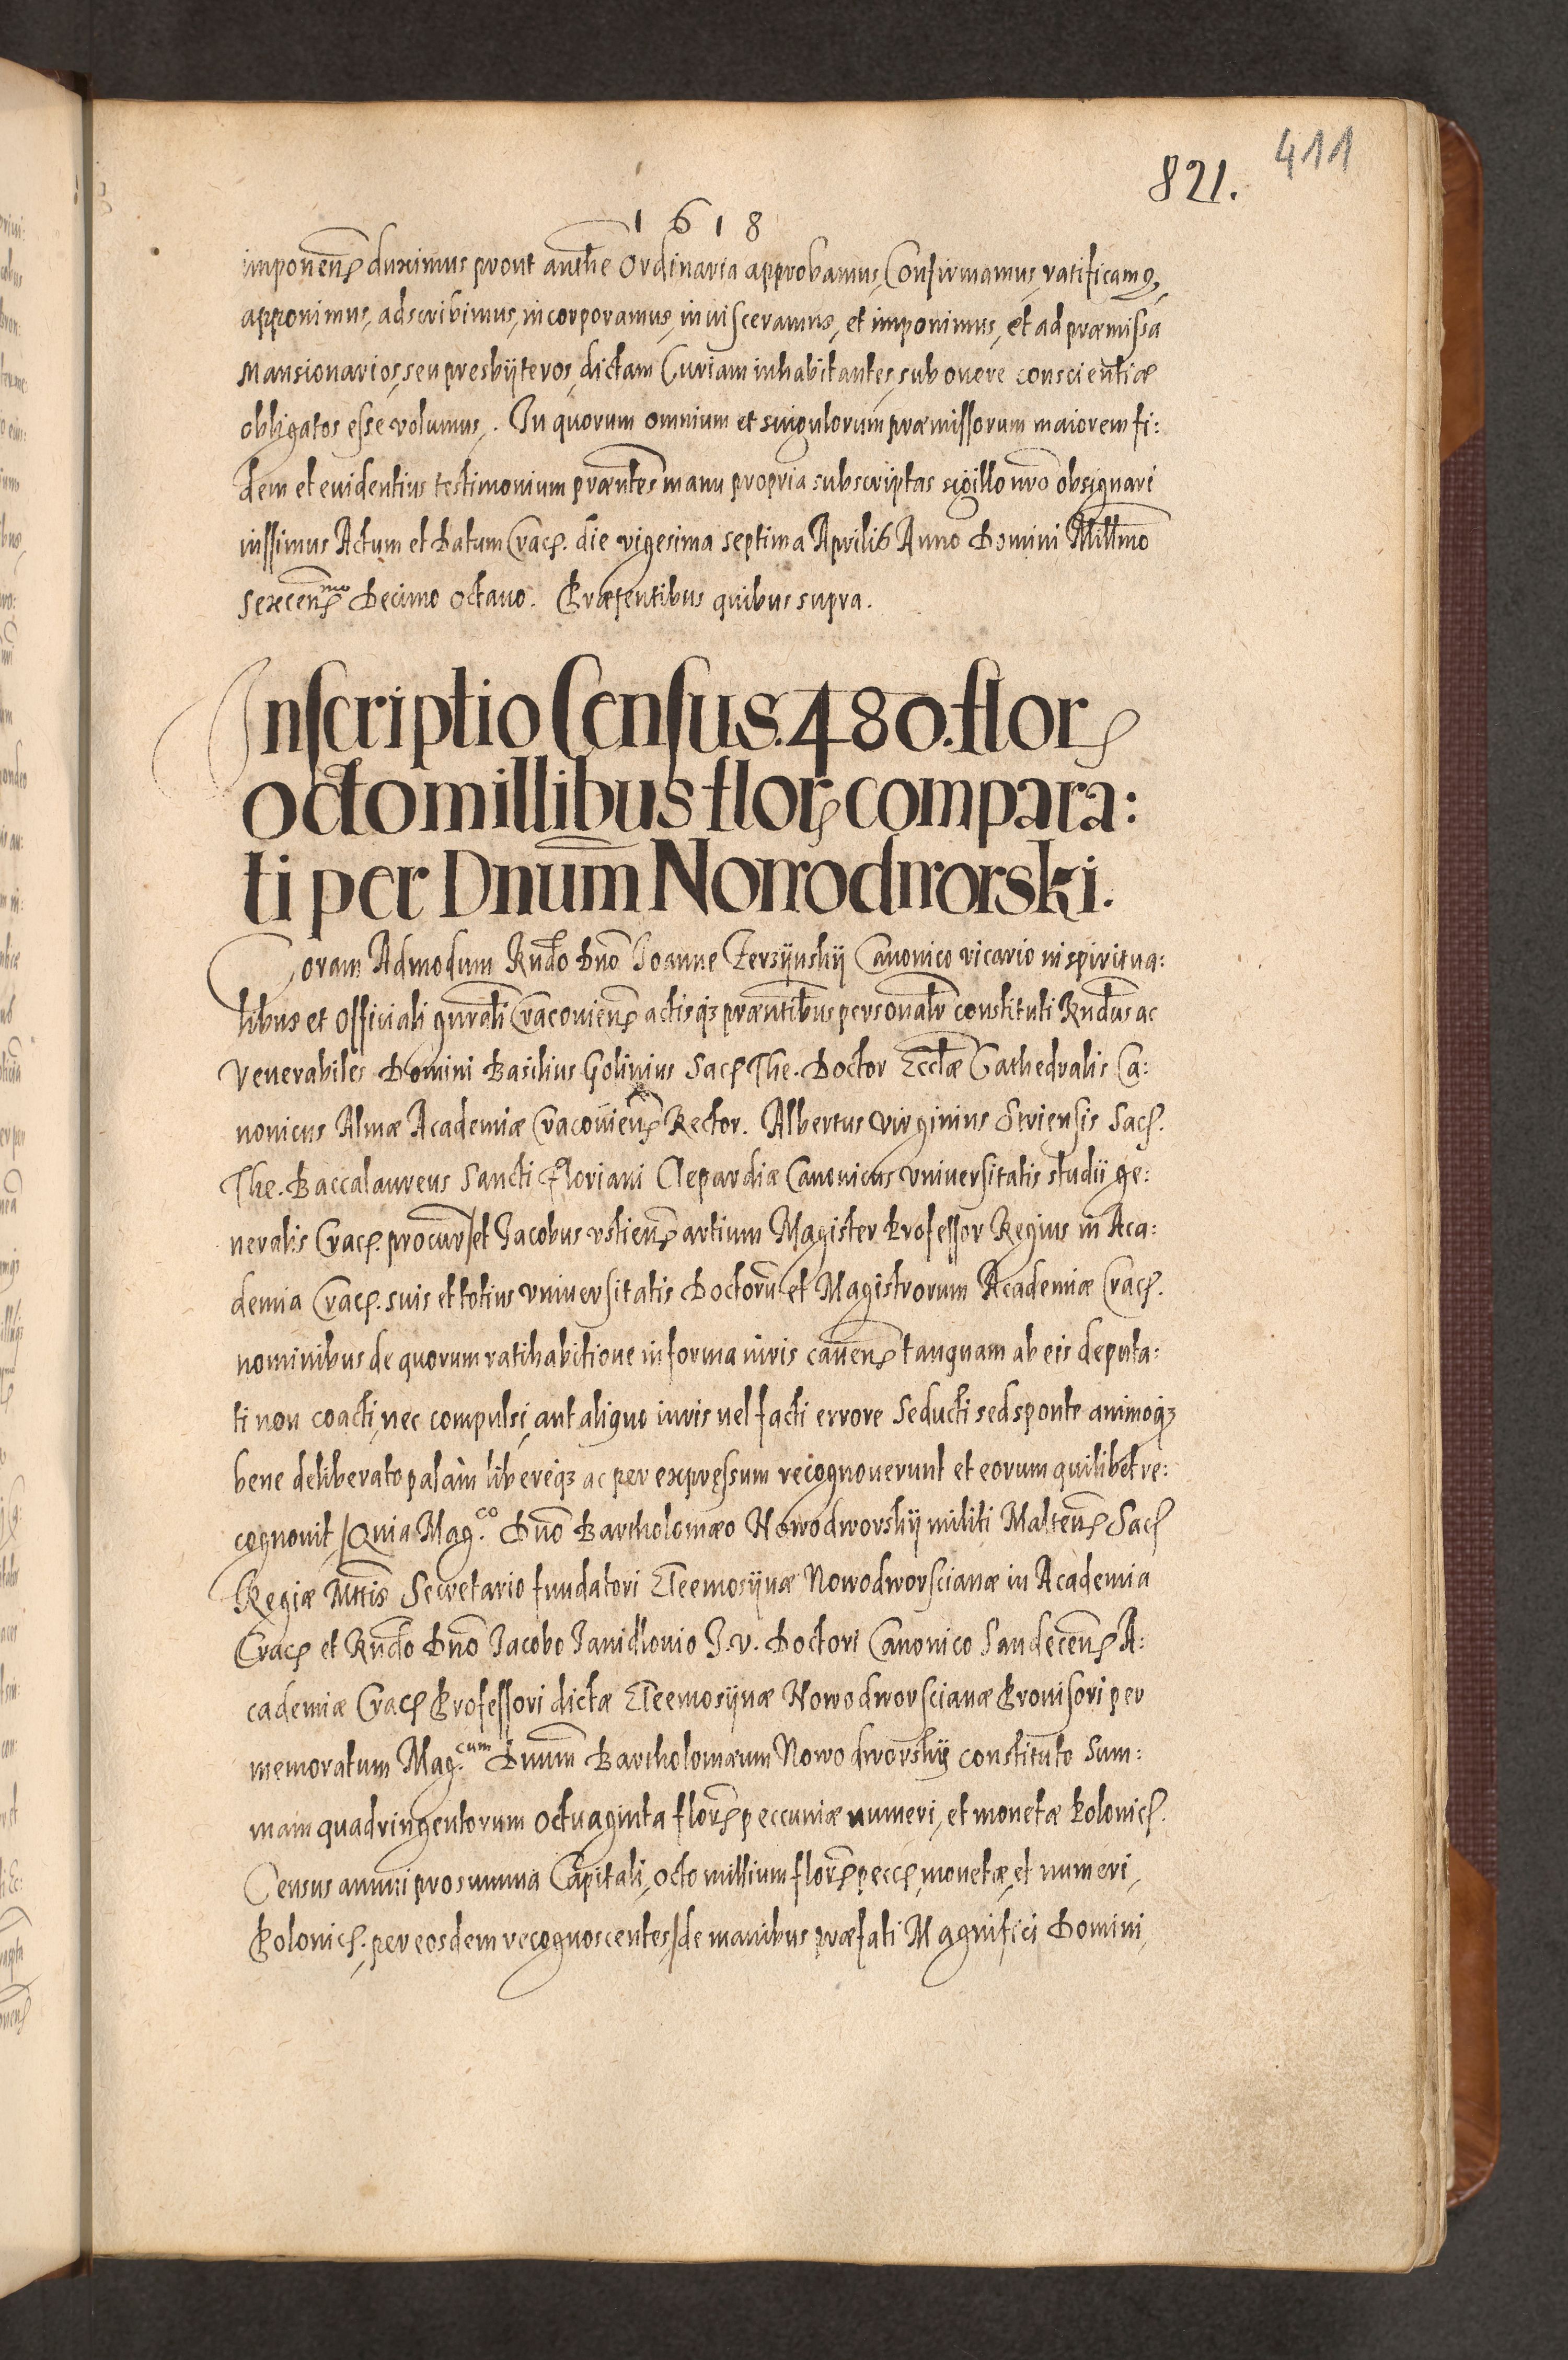 411
821.
1618
imponen̄ duximus prout aut̄he Ordinaria approbamus, Confirmamus, ratificamꝰ,
apponimus, adscribimus, incorporamus, inuisceramus, et imponimus, et ad præmissa
Mansionarios, seu presbÿteros, dictam Curiam inhabitantes, sub onere conscientiæ
obligatos esse volumus,. In quorum omnium et singulorum præmissorum maiorem fi:
dem et euidentius testimonium præn̄tes manu propria subscriptas sigillo nr̄o obsignari
iussimus Actum et Datum Crac̄. die vigesima septima Aprilis Anno Domini Mill̄mo
sexcen̄ᵐᵒ Decimo octauo. Præsentibus quibus supra.
Inscriptio Census. 480. flor̄
octo millibus flor̄ compara:
ti per Dnūm Nowodworski.
Coram Admodum Rn̄do Dn̄o Ioanne ZerzÿnskIj Canonico vicario in spiritua:
libus et Officiali gn̄rali Cracouien̄ actisqꝫ præn̄tibus personalr̄ constituti Rn̄dus ac
Venerabiles Domini Basilius Golinius Sac̄ The. Doctor Eccl̄æ Cathedralis Ca:
nonicus Almæ Academiæ Cracouien̄ Rector. Albertus Virginius Striensis Sac̄.
The. Baccalaureus Sancti Floriani Clepardiæ Canonicus Vniuersitatis studij ge:
neralis Crac̄. procur̄/et Iacobus vstien̄ artium Magister Professor Regius in Aca:
demia Crac̄. suis et totius vniuersitatis Doctorū et Magistrorum Academiæ Crac̄.
nominibus de quorum ratihabitione in forma iuris cauen̄ tanquam ab eis deputa:
ti non coacti, nec compulsi, aut aliquo iuris uel facti errore seducti sed sponte animoqꝫ
bene deliberato palam libereqꝫ ac per expressum recognouerunt et eorum quilibet re:
cognouit,/Quia Mag.ᶜᵒ Dn̄o Bartholomæo Nowodworskij militi Malten̄ Sac̄
Regiæ Mt̄tis Secretario fundatori Eleemosÿnæ Nowodworscianæ in Academia
Crac̄ et Rn̄do Dn̄o Iacobo Ianidlouio I. v. Doctori Canonico Sandecen̄ A:
cademiæ Crac̄ Professori dictæ Eleemosÿnæ Nowodworscianæ Prouisori per
memoratum Mag.ᶜᵘᵐ Dnūm Bartholomæum Nowodworskij constituto Sum:
mam quadringentorum Octuaginta flor̄ peccuniæ numeri, et monetæ Polonic̄.
Census annui pro summa Capitali, octo millium flor̄ pecc̄, monetæ, et numeri,
Polonic̄. per eosdem recognoscentes,/de manibus præfati Magnifici Domini,